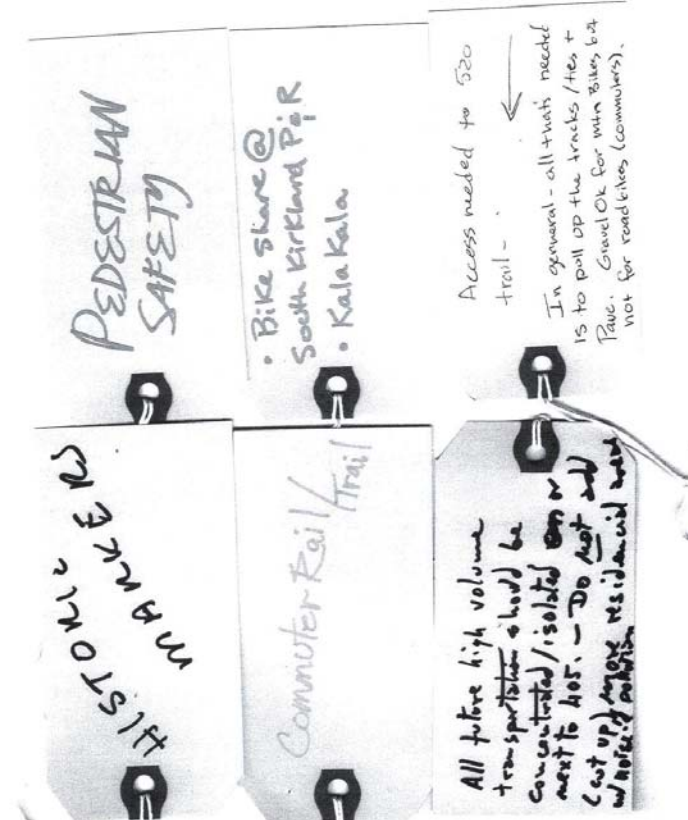 PEDESTRIAN
SAFETY
• Bike share @
South Kirkland P&R
• Kalakala
Access needed to 520
trail -
In general - all that's needed
is to pull up the tracks/ties +
Pave. Gravel Ok for mtn Bikes but
not for road bikes (commuters).
HISTORIC
MARKERS
Commuter Rail/
Trail
All future high volume
transportation should be
concentrated/isolated on or
next to 405. - Do not add
(cut up) more residential areas
w/ noise & pollution